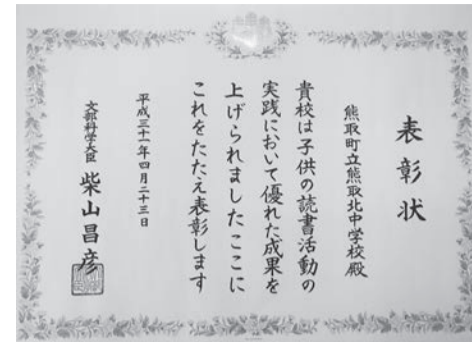 表彰状
熊取町立熊取北中学校殿
貴校は子供の読書活動の
実践において優れた成果を
上げられましたここに
これをたたえ表彰します
平成三十一年四月二十三日
文部科学大臣 柴山昌彦